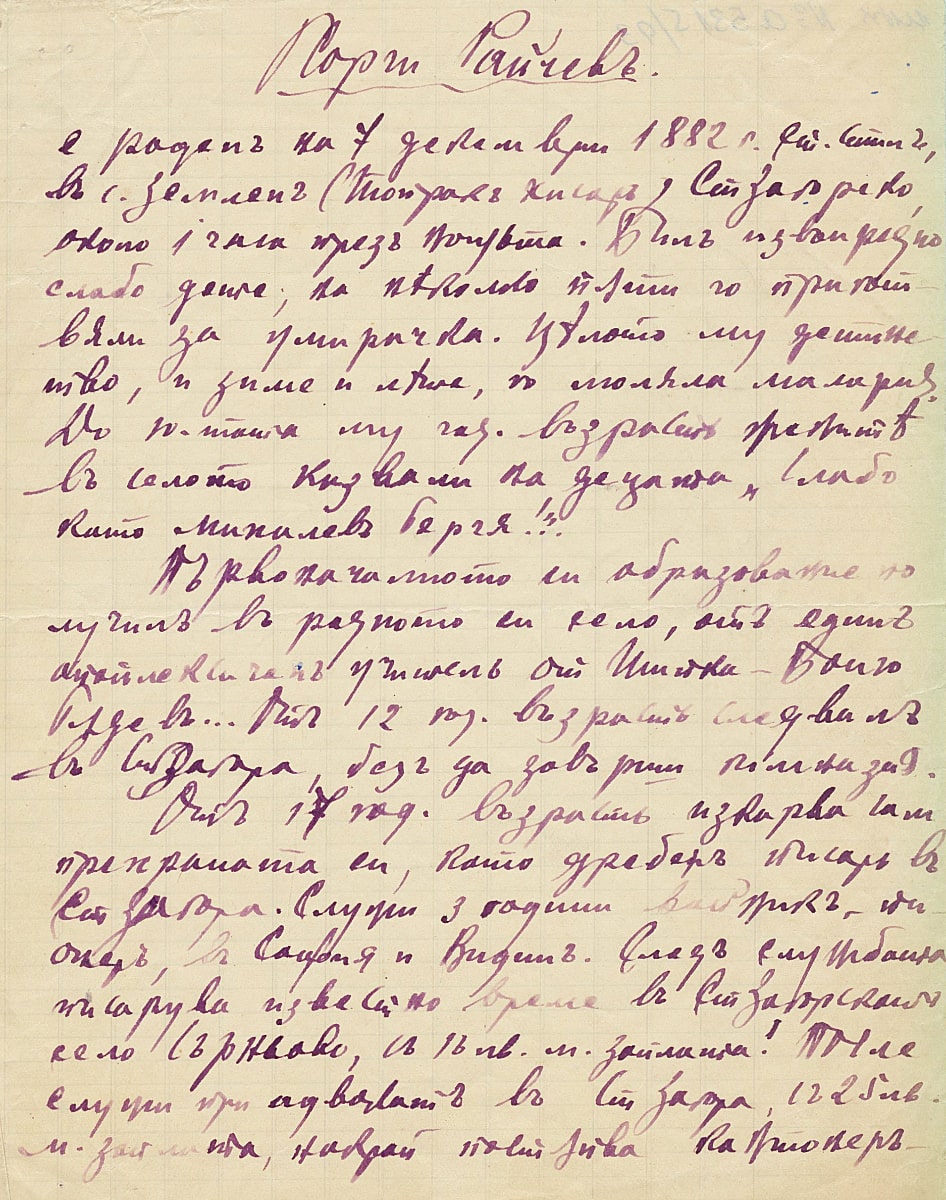 Георги Райчевъ.
е роденъ на 7 декември 1882 г. ст. стилъ,
въ с. Землен (Топракъ хисаръ) Ст Загорско,
около 1 часа презъ нощьта. Билъ извънредно
слабо дете, на нѣколко пѫти го пригот-
вяли за умирачка. Цѣлото му детинс-
тво, и зиме и лѣте, го мъляла малария.
До 10-тата му год. възрастъ женитѣ
въ селото казвали на децата „Слабо
като михалевъ Герчя!“.
Първоначалното си образование по
лучилъ въ родното си село, отъ единъ
апоплексиченъ учитель от Шипка – Боню
Гѫдевъ... Отъ 12 год. възрастъ следвалъ
въ Ст Загора, безъ да завърши гимназия.
Отъ 17 год. възрастъ изкарва сам
прехраната си, като дребенъ писарь въ
Ст Загора. Служи 3 години войникъ, пи-
онеръ, въ София и Видинъ. Следъ службата
писарува известно време въ Ст Загорското
село Сърньово, съ 15 лв. м. заплата! После
служи при адвокатъ въ Ст Загора, съ 25 лв.
м. заплата, накрай постѫпва кантонеръ-